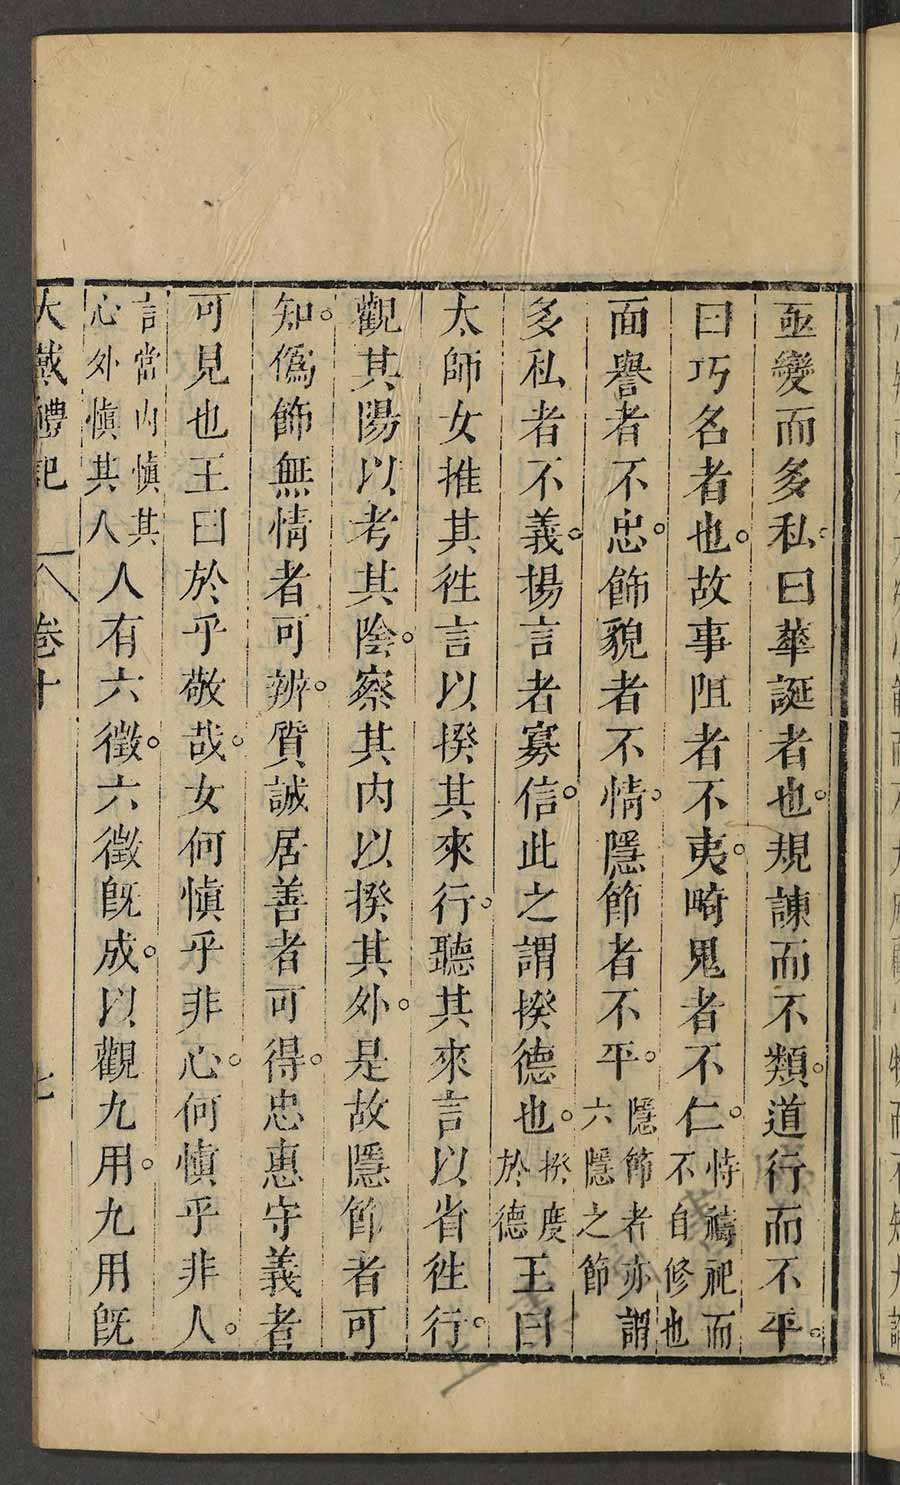 亟變而多私曰華誕者也。規諫而不類。道行而不平。
曰巧名者也。故事阻者不夷。畸鬼者不仁。恃禱祀而不自修也
面譽者不忠。飾貌者不情。隱節者不平。隱節者亦謂六隱之節
多私者不義。揚言者寡信。此之謂揆德也。揆度於德王曰
太師女推其徃言以揆其來行。聽其來言以省徃行。
觀其陽以考其陰。察其内以揆其外。是故隱節者可
知。僞飾無情者可辨。質誠居善者可得。忠惠守義者
可見也王曰於乎敬哉。女何慎乎非心。何慎乎非人。
言當内慎其心外慎其人人有六徵。六徵旣成。以觀九用。九用旣
大戴禮記 卷十 七